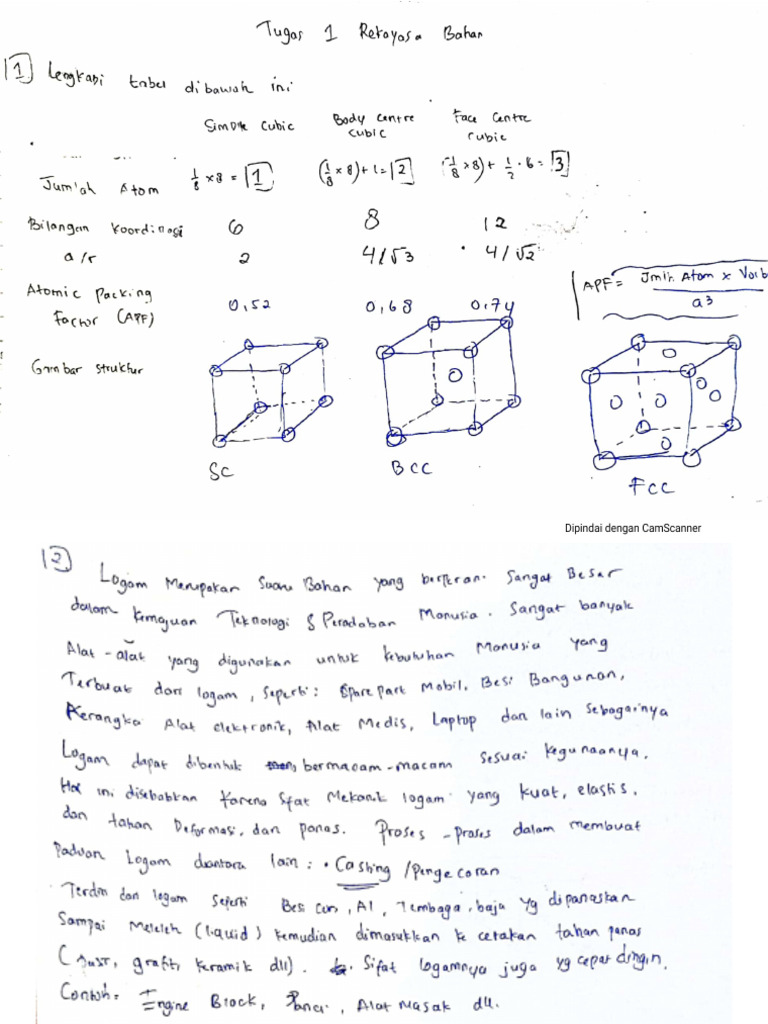 Tugas 1 Rekayasa Bahan
1 Lengkapi tabel dibawah ini
Simple Cubic Body Centre Cubic Face Centre Cubic
Jumlah Atom 1/8 x 8 = 1 (1/8 x 8) + 1 = 2 (1/8 x 8) + 1/2 . 6 = 3
Bilangan Koordinasi 6 8 12
a/r 2 4/√3 4/√2
APF = Jmlh Atom x Volb
a3
Atomic Packing Factor (APF) 0,52 0,68 0,74
Gambar struktur
SC BCC FCC
Dipindai dengan CamScanner
2 Logam Merupakan Suatu Bahan yang berperan Sangat Besar
dalam Kemajuan Teknologi & Peradaban Manusia. Sangat banyak
Alat-alat yang digunakan untuk kebutuhan Manusia yang
Terbuat dari logam, seperti: Sparepart Mobil, Besi Bangunan,
Kerangka Alat elektronik, Alat Medis, Laptop dan lain sebagainya
Logam dapat dibentuk bermacam-macam sesuai kegunaannya.
Hal ini disebabkan Karena Sifat Mekanik logam yang kuat, elastis,
dan tahan Deformasi, dan panas. Proses-proses dalam membuat
Paduan Logam diantara lain: • Casting /Pengecoran
Terdiri dari logam Seperti Besi Cor, Al, Tembaga, baja yg dipanaskan
Sampai Meleleh (liquid) kemudian dimasukkan ke cetakan tahan panas
(pasir, grafit, keramik dll). Sifat logamnya juga yg cepat dingin.
Contoh: Engine Block, Panci, Alat Masak dll.